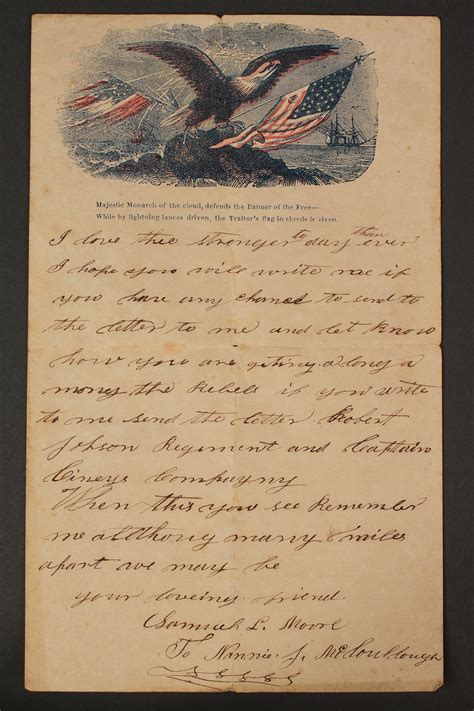 Majestic Monarch of the cloud, defends the Banner of the Free—
While by lightning lances driven, the Traitor's flag in shreds is riven.
I love thee stronger to day than ever
I hope you will write me if
you have any chance to send to
the letter to me and let know
how you are geting along a
mong the Rebels if you write
to me send the letter Robert
Johson Regiment and Captain
Compayny
When this you see Remember
me allthoug many miles
apart we may be
your loveing friend
Samuel L. Moore
To Nannie J. McCoullough